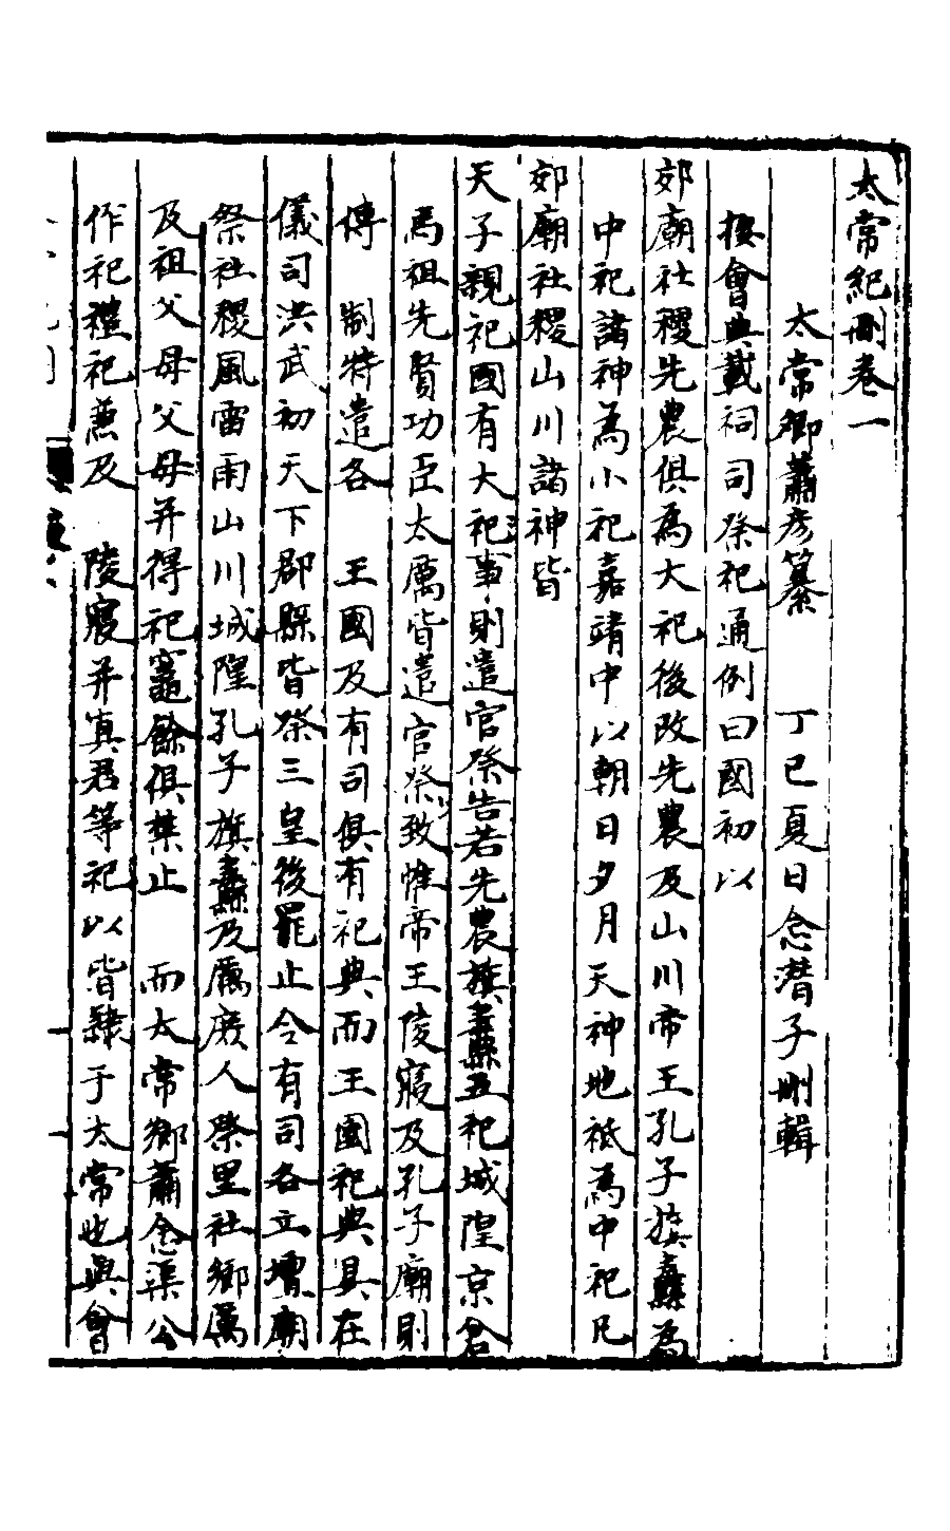 太常紀刪卷一
太常鄉蕭彥纂　丁巳夏日念潛子刪輯
按會典載祠司祭祀通例曰國初以
郊廟社稷先農俱為大祀後改先農及山川帝王孔子旗纛為
中祀諸神為小祀嘉靖中以朝日夕月天神地祗為中祀凡
郊廟社稷山川諸神皆
天子親祀國有大祀事則遣官祭告若先農旗纛五祀城隍京倉
馬祖先賢功臣太厲皆遣官祭致惟帝王陵寢及孔子廟則
傳　制特遣各　王國及有司俱有祀典而王國祀典具在
儀司洪武初天下郡縣皆祭三皇後罷止令有司各立壇廟
祭社稷風雷雨山川城隍孔子旗纛及厲庶人祭里社鄉厲
及祖父母父母并得祀竈餘俱禁止　而太常鄉蕭念渠公
作祀禮祀兼及　陵寢并真君等祀以皆隸于太常也與會